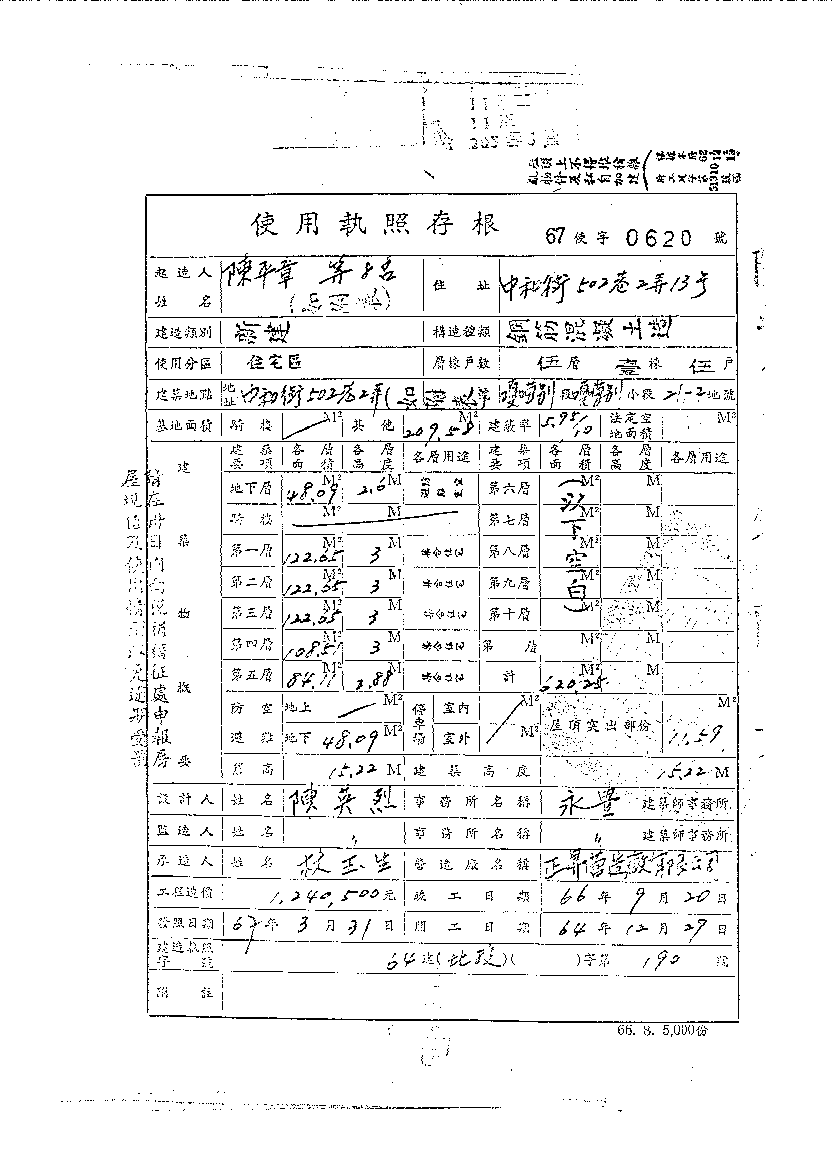 使用執照存根
67使字 0620 號
起造人姓名 陳平章 等8名 住址 中和街502巷2弄13号
建造類別 新建 構造種類 鋼筋混凝土造
使用分區 住宅區 層棟戶數 伍層 壹棟 伍戶
建築地點 地址 中和街502巷2弄 段 小段 21-2地號
基地面積 騎樓 M² 其他 209.58 M² 建蔽率 5.95/10 法定空地面積 M²
建築物概要 建築要項 各層面積 各層高度 各層用途 建築要項 各層面積 各層高度 各層用途
地下層 48.09 M² 2.6 M 第六層 (以下空白) M² M
騎樓 M² M 第七層 M² M
第一層 122.05 M² 3 M 第八層 M² M
第二層 122.05 M² 3 M 第九層 M² M
第三層 122.05 M² 3 M 第十層 M² M
第四層 108.51 M² 3 M 第 層 M² M
第五層 84.11 M² 2.88 M 計 620.25 M² M
防空避難 地上 M² 停車場 室內 M² 屋頂突出部份 11.59 M²
地下 48.09 M² 室外 M²
簷高 15.22 M 建築高度 15.22 M
設計人 姓名 陳英烈 事務所名稱 永豐 建築師事務所
監造人 姓名 〃 事務所名稱 〃 建築師事務所
承造人 姓名 林玉生 營造廠名稱 正昇營造廠有限公司
工程造價 1,240,500元 竣工日期 66年9月20日
發照日期 67年3月31日 開工日期 64年12月29日
建造執照字號 64建( )( )字第 190 號
附註
66. 8. 5,000份